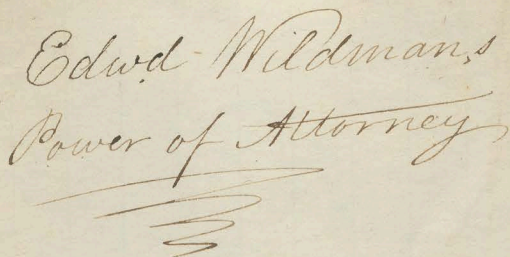 Edwd Wildman,s
Power of Attorney